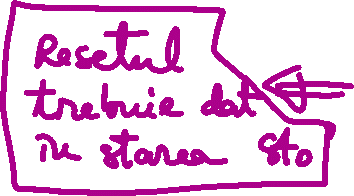 Resetul
trebuie dat
în starea St0